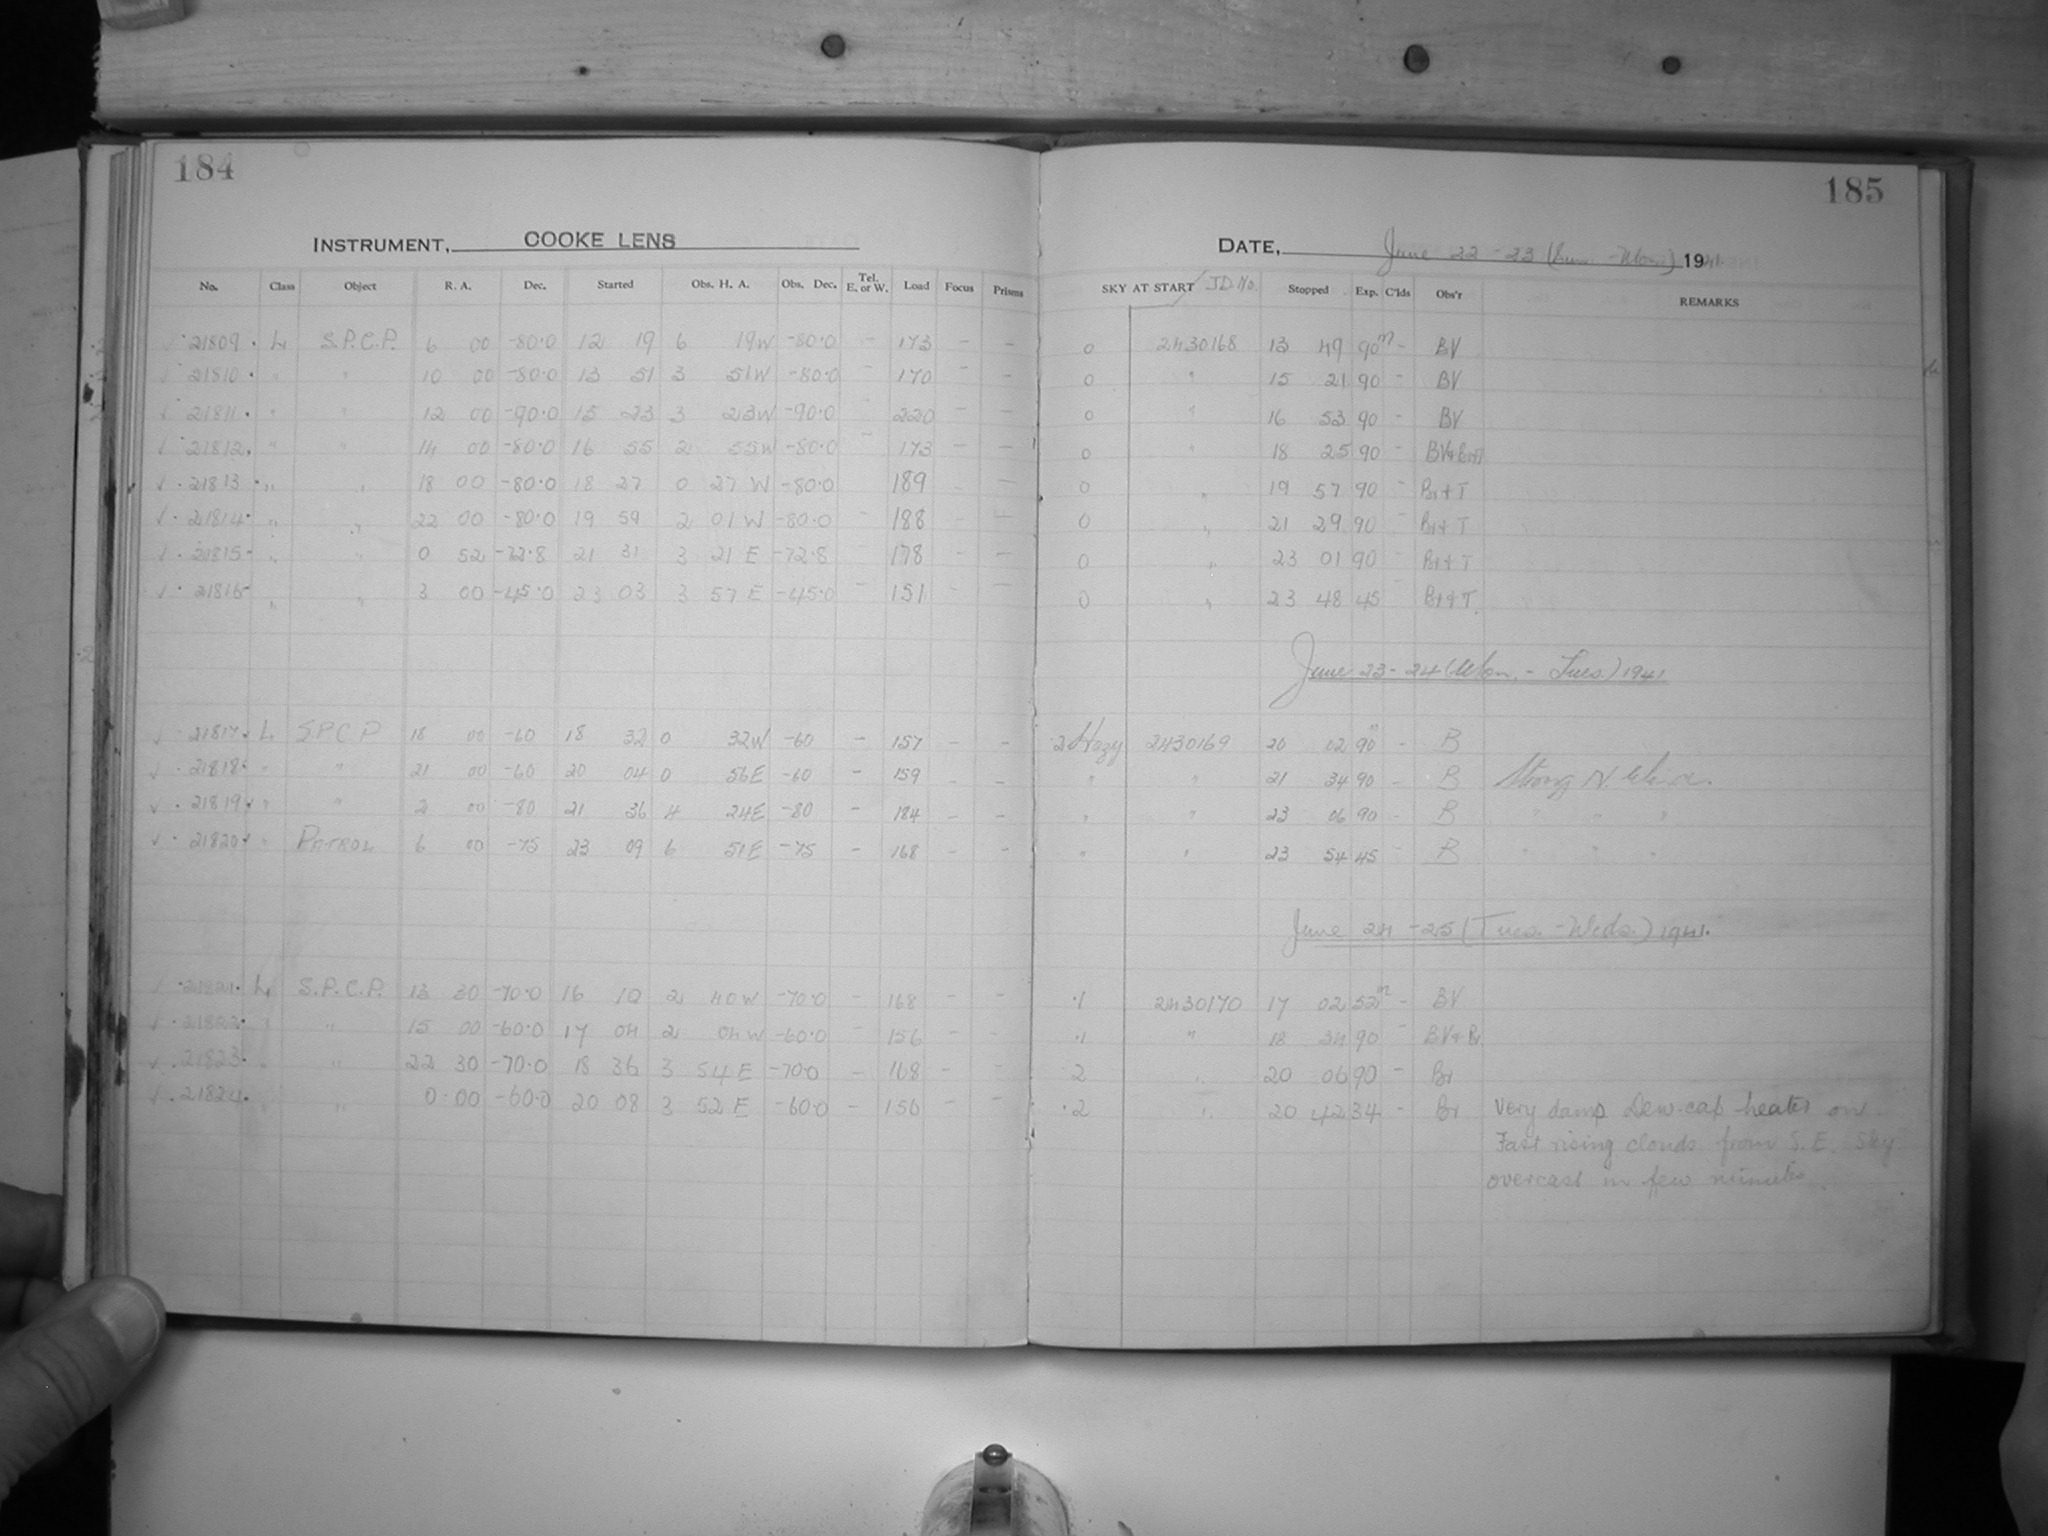 184
185
INSTRUMENT, COOKE LENS
DATE, June 22-23 (Sun. -Mon.) 1941
No. Class Object R. A. Dec. Started Obs. H. A. Obs. Dec. Tel. E. or W. Load Focus Prisms SKY AT START J.D. No. Stopped Exp. C'lds Obs'r REMARKS
✓ ·21809· L S.P.C.P. 6 00 -80·0 12 19 6 19W -80·0 - 173 - - 0 2430168 13 49 90m - BV
✓ ·21810· " " 10 00 -80·0 13 51 3 51W -80·0 - 170 - - 0 " 15 21 90 - BV
✓ ·21811· " " 12 00 -90·0 15 23 3 23W -90·0 - 220 - - 0 " 16 53 90 - BV
✓ ·21812· " " 14 00 -80·0 16 55 2 55W -80·0 - 173 - - 0 " 18 25 90 -
✓ ·21813· " " 18 00 -80·0 18 27 0 27 W -80·0 189 - - 0 " 19 57 90 - Br+T
✓ ·21814· " " 22 00 -80·0 19 59 2 01 W -80·0 - 188 - - 0 " 21 29 90 - Br+T
✓ ·21815· " " 0 52 -72·8 21 31 3 21 E -72·8 178 - - 0 " 23 01 90 - Br+T
✓ ·21816· " " 3 00 -45·0 23 03 3 57 E -45·0 - 151 - - 0 " 23 48 45 Br+T.
June 23-24 (Mon. - Tues.) 1941
✓ ·21817· L S.P.C.P 18 00 -60 18 32 0 32W -60 - 157 - - ·2 Hazy 2430169 20 02 90m - B
✓ ·21818· " " 21 00 -60 20 04 0 56E -60 - 159 - - " " 21 34 90 - B Strong N. Wind.
✓ ·21819· " " 2 00 -80 21 36 4 24E -80 - 184 - - " " 23 06 90 - B " " "
✓ ·21820· " PATROL 6 00 -75 23 09 6 51E -75 - 168 - - " " 23 54 45 - B " " "
June 24-25 (Tues. -Weds.) 1941.
✓ ·21821· L S.P.C.P. 13 30 -70·0 16 10 2 40W -70·0 - 168 - - ·1 2430170 17 02 52m - BV
✓ ·21822· " " 15 00 -60·0 17 04 2 04W -60·0 - 156 - - ·1 " 18 34 90 - BV+Br
✓ ·21823· " " 22 30 -70·0 18 36 3 54 E -70·0 - 168 - - ·2 " 20 06 90 - Br
✓ ·21824· " " 0·00 -60·0 20 08 3 52 E -60·0 - 156 - - ·2 " 20 42 34 - Br Very damp. Dew-cap heater on
Fast rising clouds from S.E. Sky
overcast in few minutes.